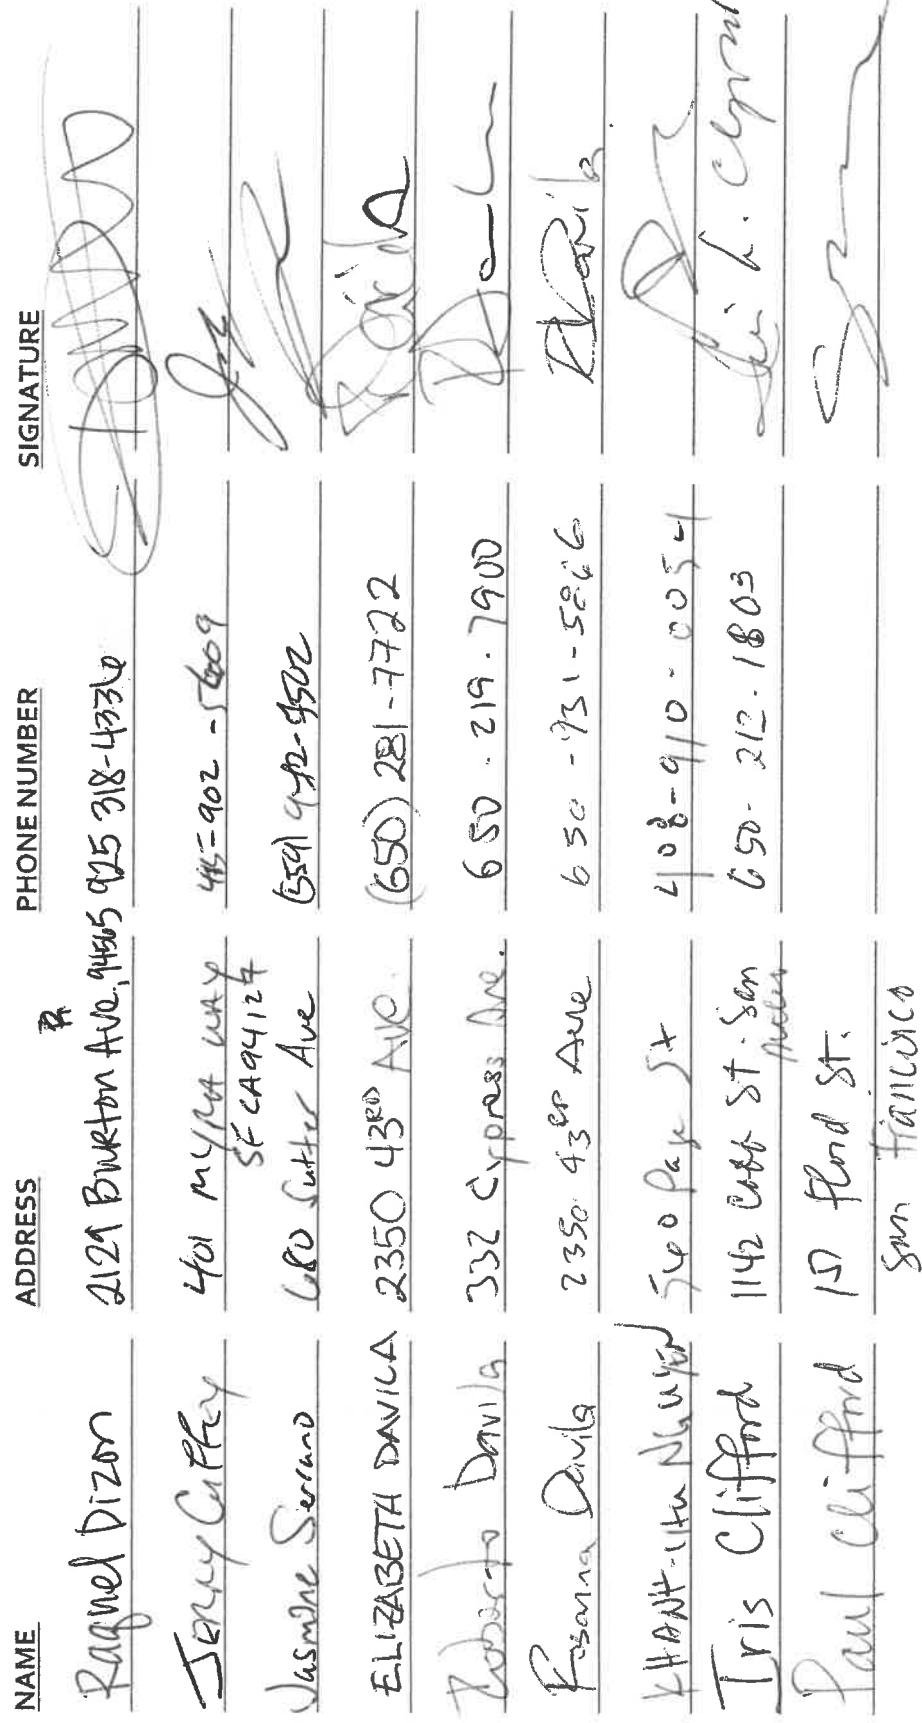 NAME ADDRESS PHONE NUMBER SIGNATURE
Raquel Dizon 2129 Burton Ave, 94565 925 318-4336
Jerry 401 MYRA WAY 415-902-5609
SF CA 94127
Jasmine Serrano 680 Sutter Ave (559) 942-9502
ELIZABETH DAVILA 2350 43RD AVE. (650) 281-7722
Roberto Davila 332 Cypress Ave. 650.219.7900
Rosanna Davila 2350 43rd Ave 650-931-5866 RDavila
KHANH-NHU NGUYEN 560 Page St 408-910-0054
Iris Clifford 1142 St. San 650-212-1803
Paul Clifford 157 St.
San Francisco